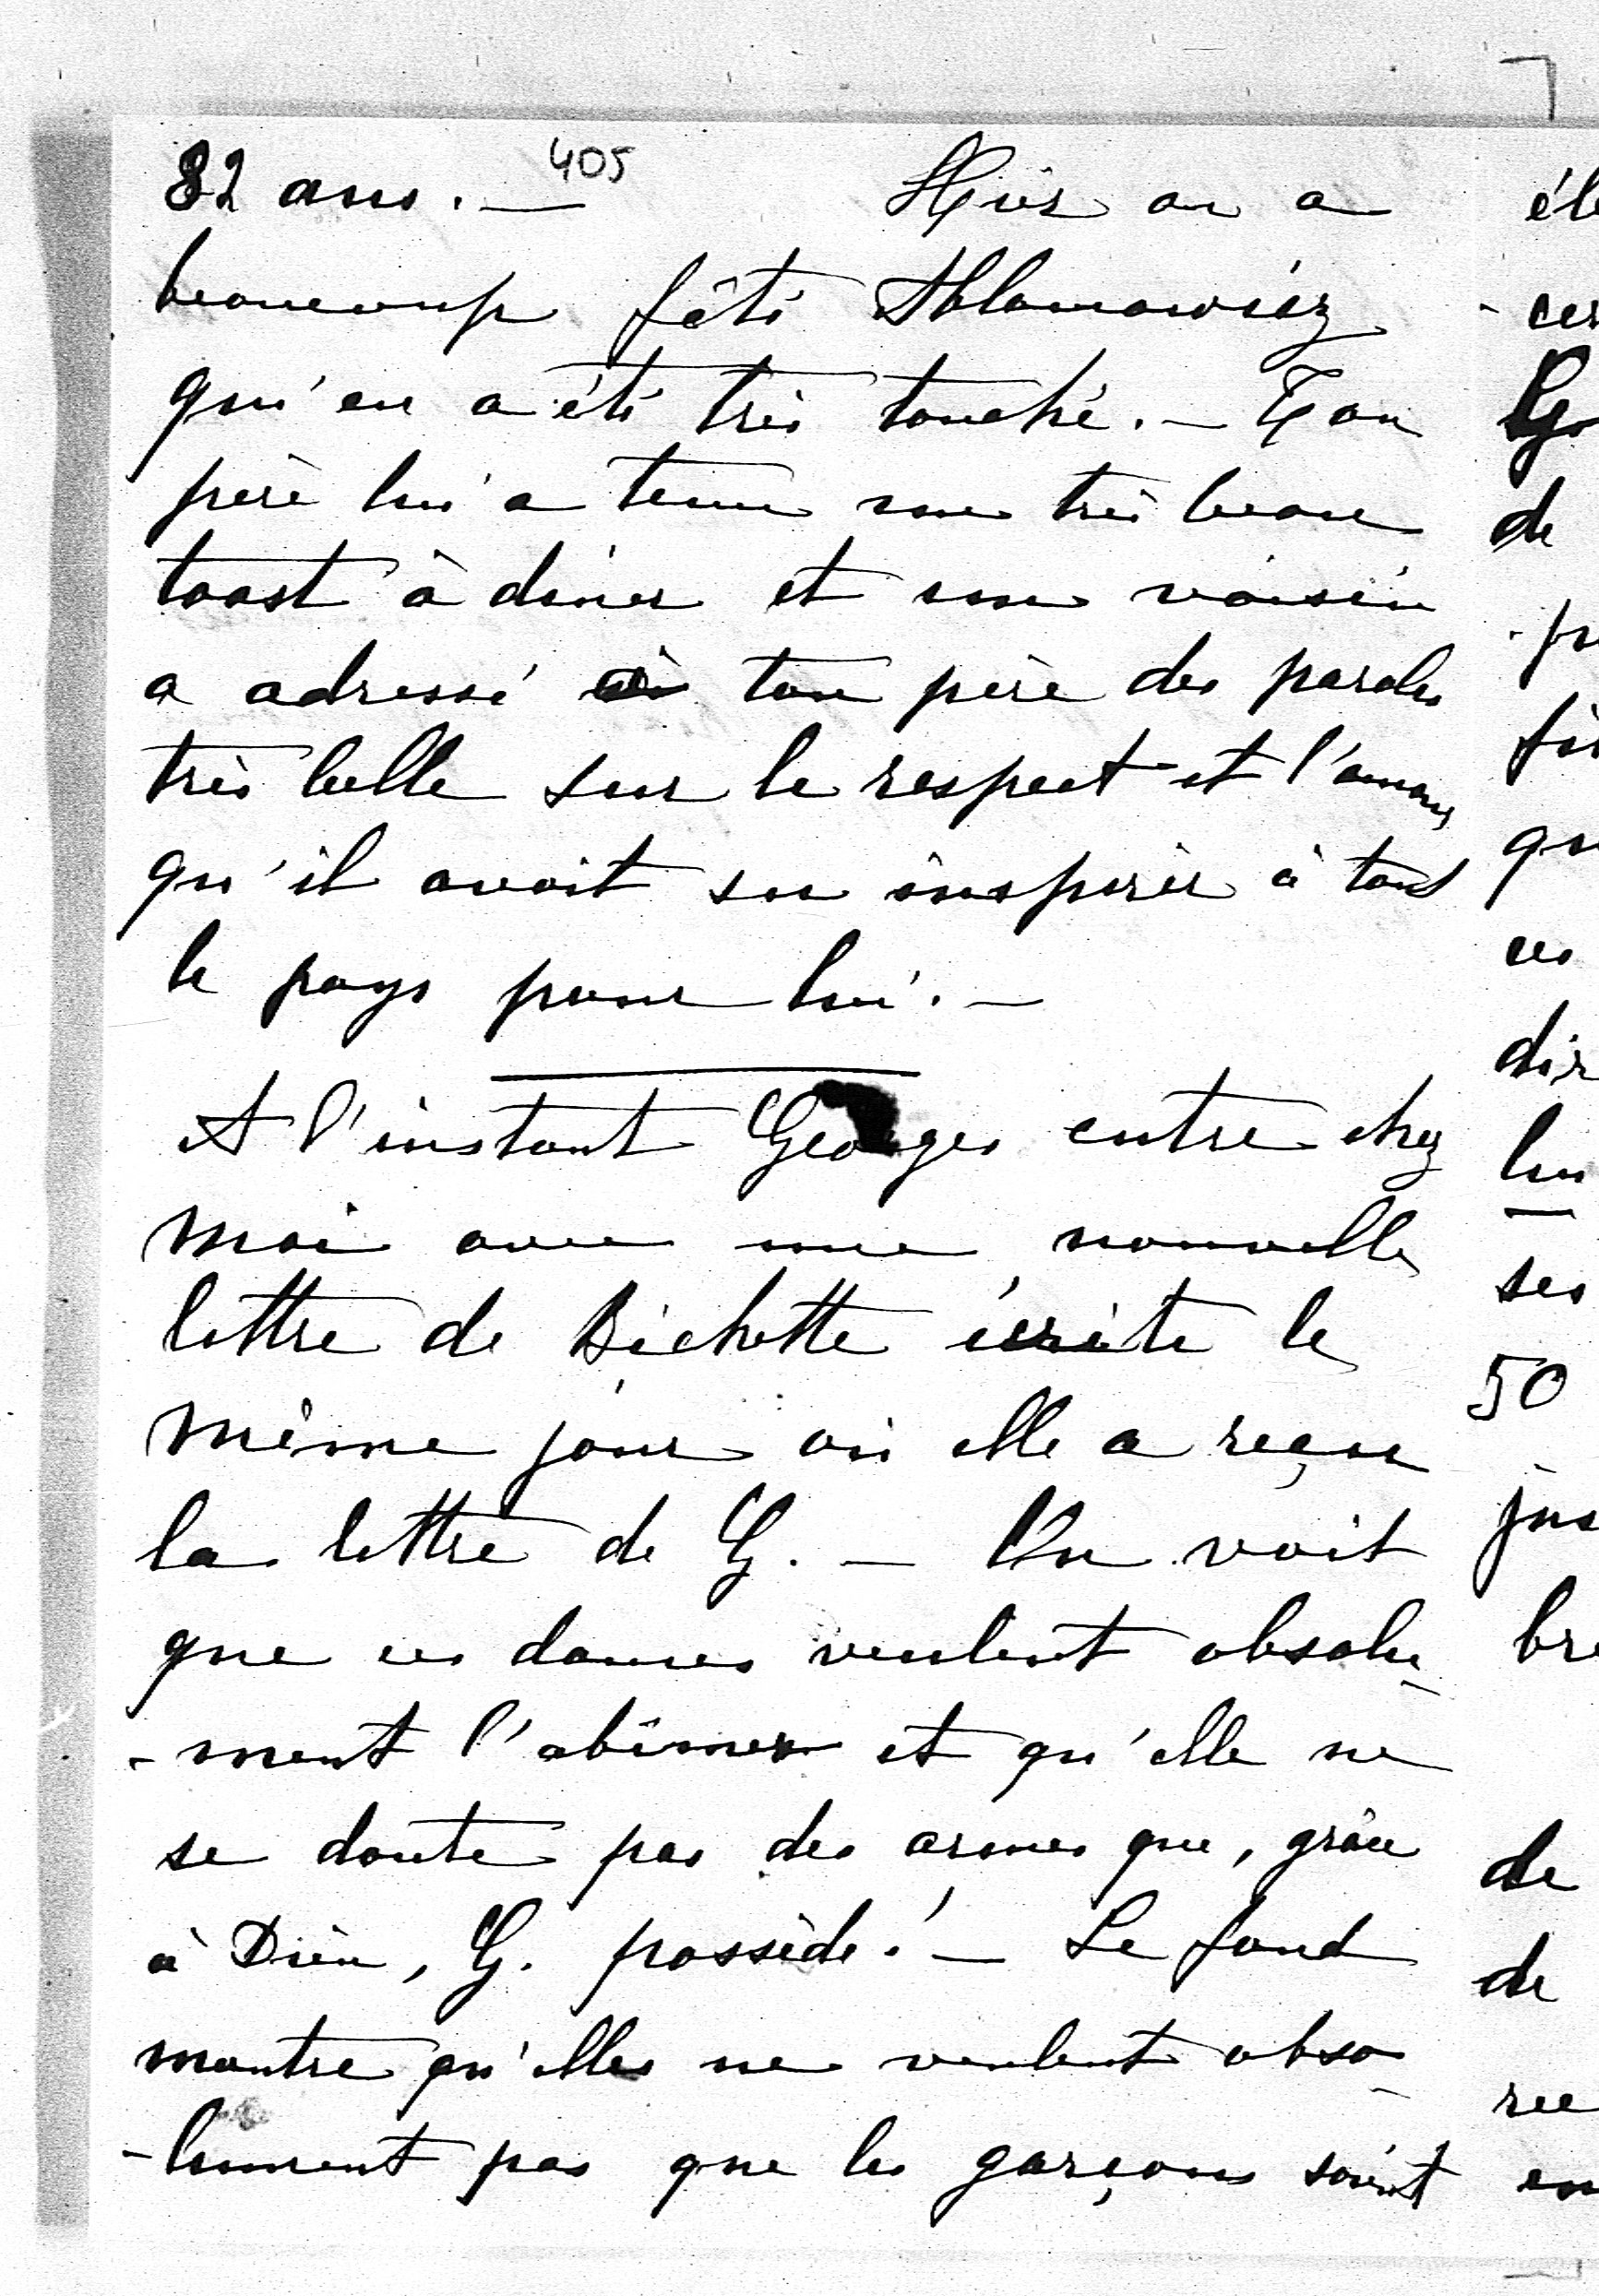 405
82 ans. — Hier on a
beaucoup fêté Ablamowicz
qui en a été très touché. — Ton
père lui a tenu un très beau
toast à dîner et son voisin
a adressé à ton père des paroles
très belle sur le respect et l'amour
qu'il avait su inspirer à tout
le pays pour lui. —
A l'instant Georges entre chez
moi avec une nouvelle
lettre de Bichette écrite le
même jour où elle a reçu
la lettre de G. — On voit
que ces dames veulent absolu-
-ment l'abîmer et qu'elle ne
se doute pas des armes que, grâce
à Dieu, G. possède! — Le fond
montre qu'elles ne veulent abso-
-lument pas que les garçons soient
de
ses
50
de
de